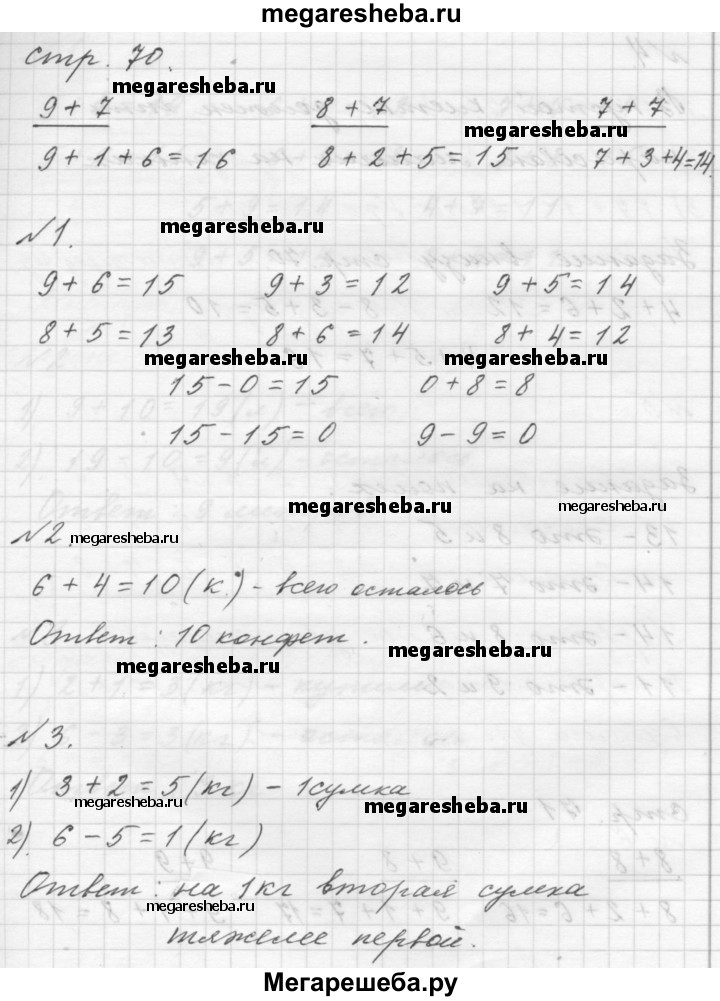 megaresheba.ru
стр. 70.
megaresheba.ru
9 + 7 8 + 7 7 + 7
megaresheba.ru
9 + 1 + 6 = 16 8 + 2 + 5 = 15 7 + 3 + 4 = 14.
№1. megaresheba.ru
9 + 6 = 15 9 + 3 = 12 9 + 5 = 14
8 + 5 = 13 8 + 6 = 14 8 + 4 = 12
megaresheba.ru megaresheba.ru
15 - 0 = 15 0 + 8 = 8
15 - 15 = 0 9 - 9 = 0
megaresheba.ru megaresheba.ru
№2. megaresheba.ru
6 + 4 = 10 (к.) - всего осталось
Ответ: 10 конфет.
megaresheba.ru megaresheba.ru
№3.
1) 3 + 2 = 5 (кг) - 1 сумка
megaresheba.ru megaresheba.ru
2) 6 - 5 = 1 (кг)
Ответ: на 1 кг вторая сумка
megaresheba.ru
тяжелее первой.
Мегарешеба.ру